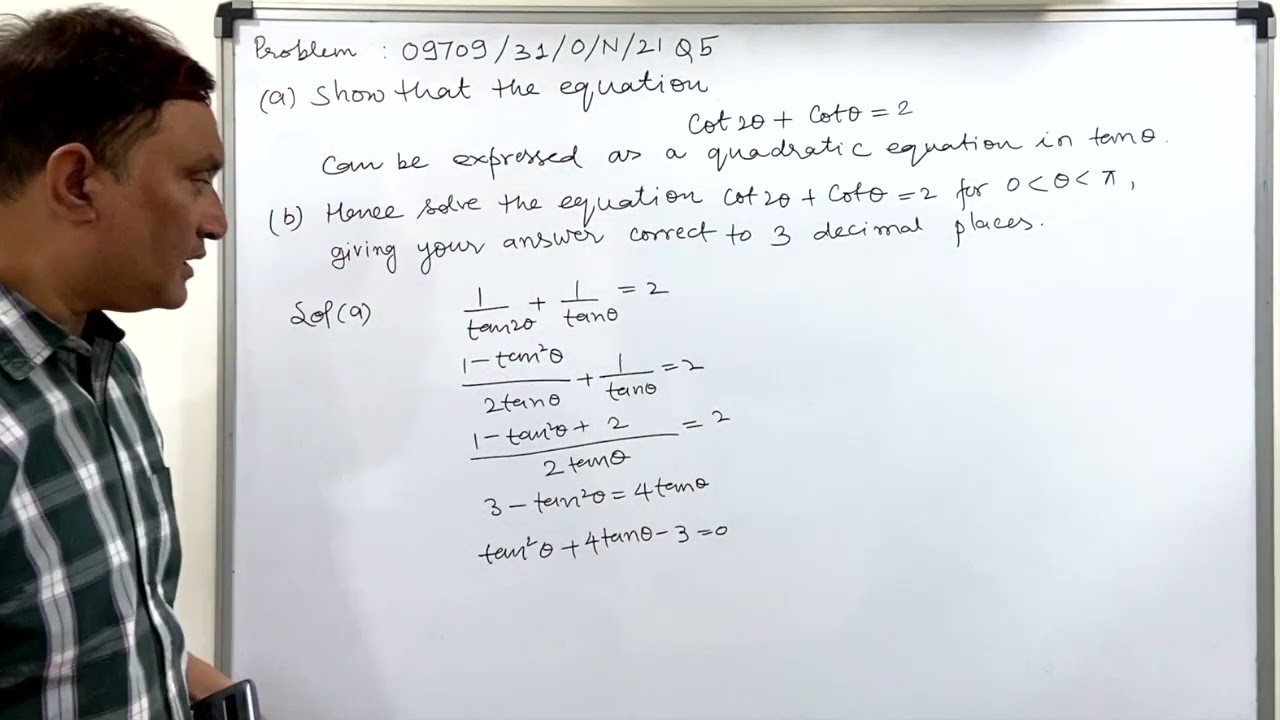 Problem : 09709/31/O/N/21 Q5
(a) Show that the equation
Cot 2θ + Cotθ = 2
Can be expressed as a quadratic equation in tanθ.
(b) Hence solve the equation Cot 2θ + Cotθ = 2 for 0 < θ < π,
giving your answer correct to 3 decimal places.
Sol(a) 1/tan2θ + 1/tanθ = 2
(1 - tan²θ)/(2tanθ) + 1/tanθ = 2
(1 - tan²θ + 2)/(2 tanθ) = 2
3 - tan²θ = 4tanθ
tan²θ + 4tanθ - 3 = 0